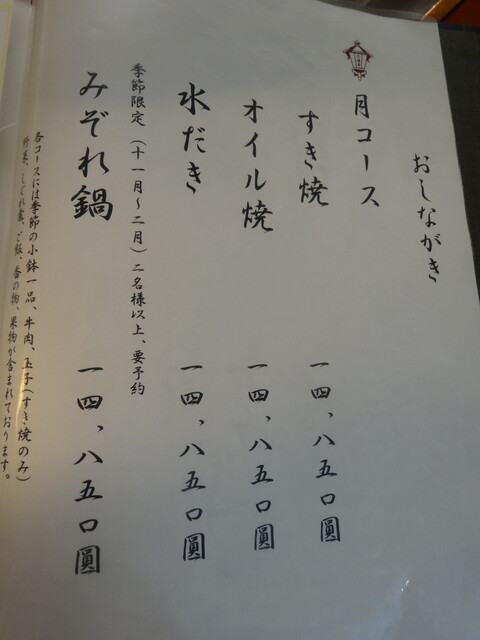 おしながき
月コース
すき焼 一四、八五〇圓
オイル焼 一四、八五〇圓
水だき 一四、八五〇圓
季節限定（十一月～二月）二名様以上、要予約
みぞれ鍋 一四、八五〇圓
各コースには季節の小鉢一品、牛肉、玉子（すき焼のみ）
野菜、しぐれ煮、ご飯、香の物、果物が含まれております。